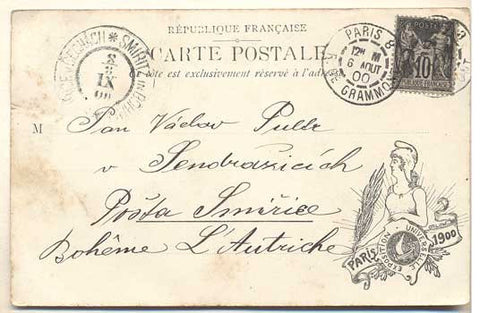 RÉPUBLIQUE FRANÇAISE
CARTE POSTALE
Ce côté est exclusivement réservé à l'adresse
PARIS 8
12H M
6 AOUT
00
GRAMMONT
10
SMIRITZ
M Pan Václav Pulse
v Sendražicích
Pošta Smiřice
Bohême L'Autriche
PARIS 1900
EXPOSITION UNIVERSELLE